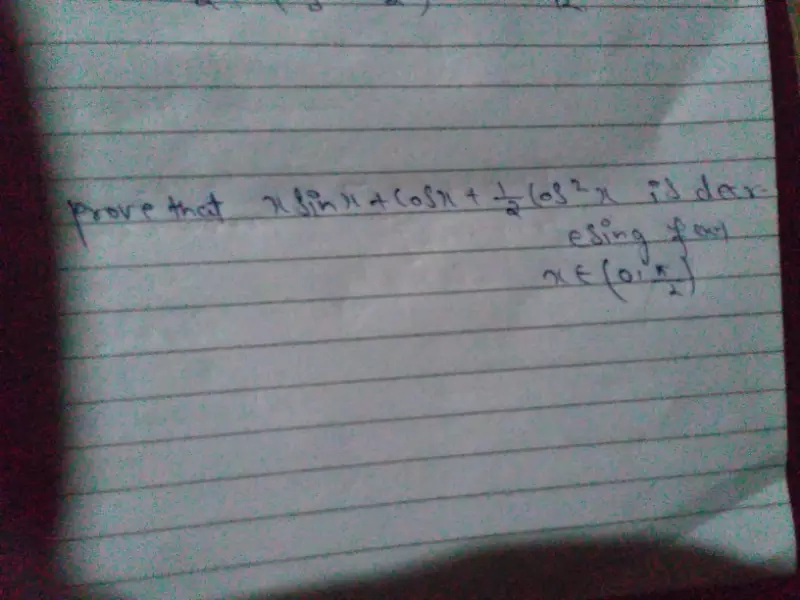 prove that x sin x + cos x + 1/2 cos² x is decr-
esing f(x)
x ∈ (0, π/2)